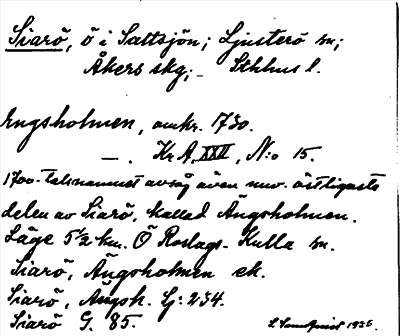 Siarö, ö i Saltsjön; Ljusterö sn;
Åkers skg; Sthlms l.
Engsholmen, omkr. 1730.
—. Kr A, XXII, N:o 15.
1700-talsnamnet avsåg även nuv. östligaste
delen av Siarö, kallad Ängsholmen.
Läge 5½ km. Ö Roslags-Kulla sn.
Siarö, Ängsholmen ek.
Siarö, Ängsh. Gj: 234.
Siarö G. 85.
1925.